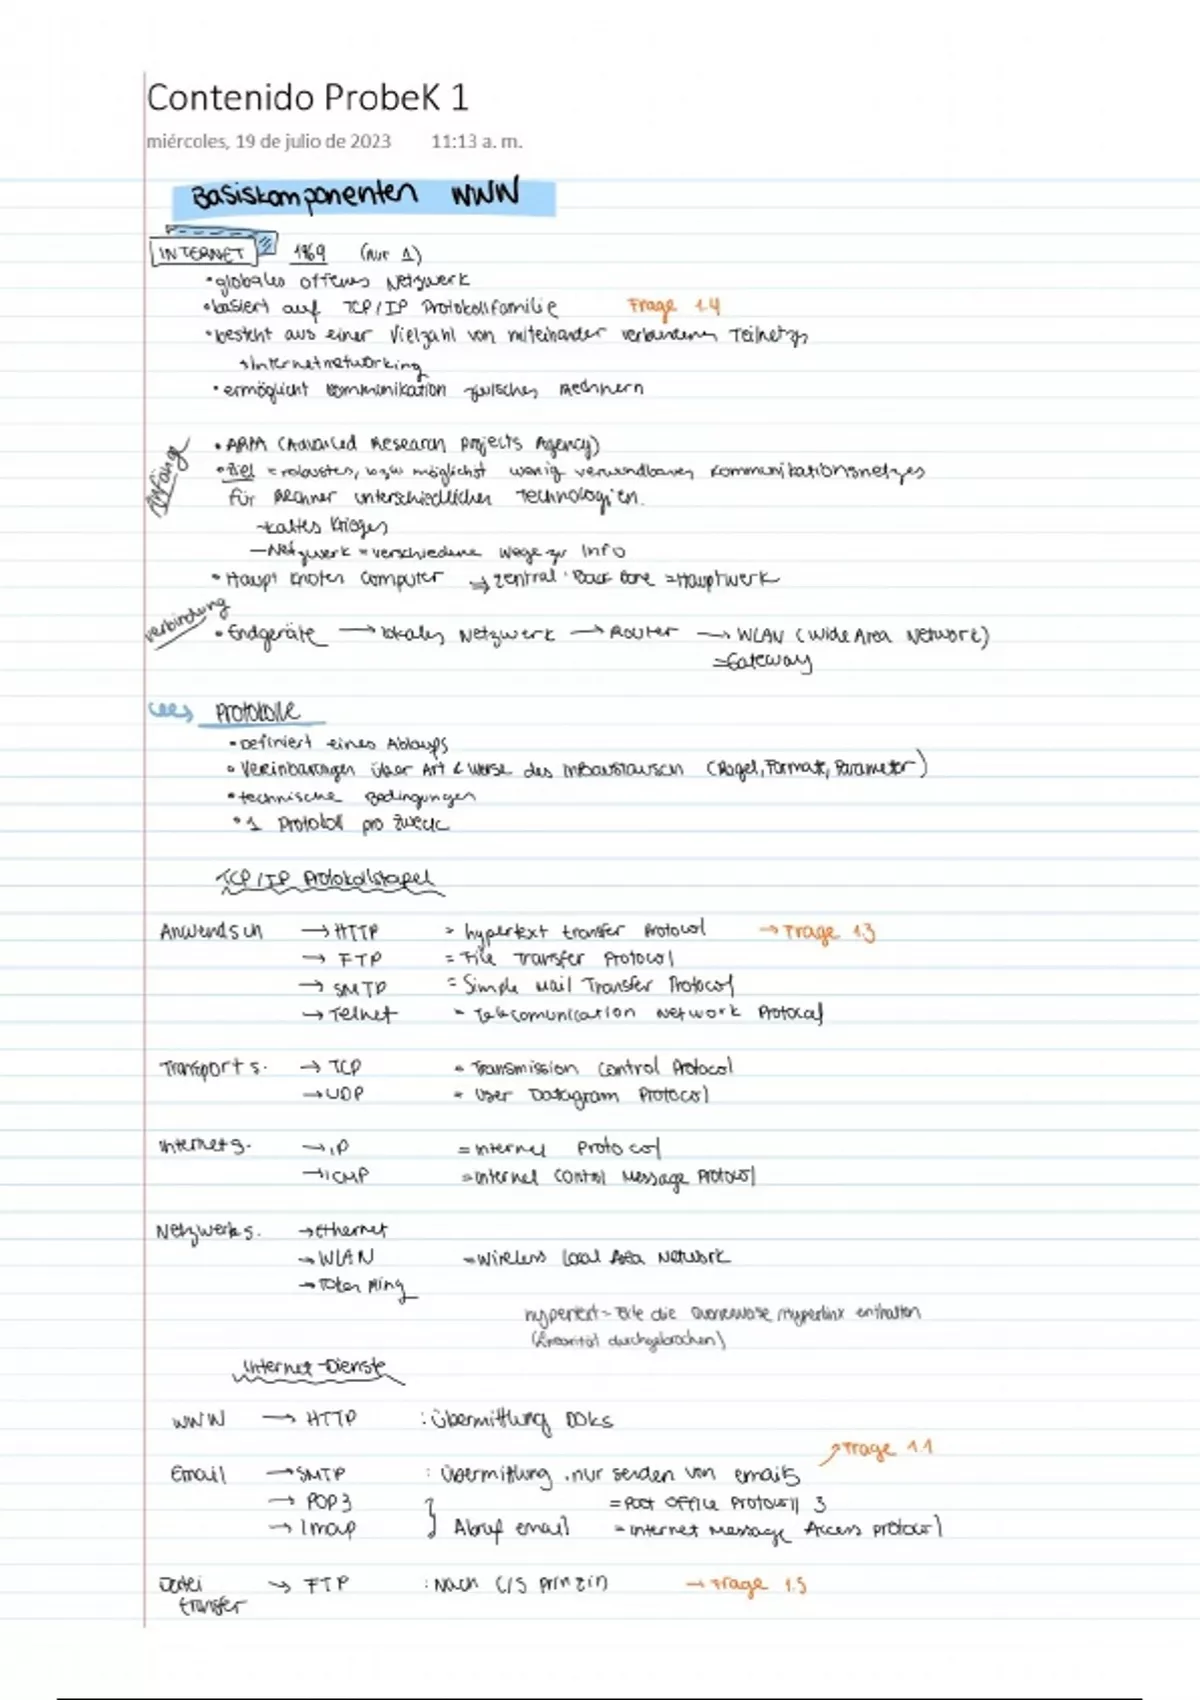 Contenido ProbeK 1
miércoles, 19 de julio de 2023 11:13 a. m.
Basiskomponenten WWW
INTERNET 1969 (nur 1)
• globales offenes Netzwerk
• basiert auf TCP/IP Protokollfamilie Frage 1.4
• besteht aus einer Vielzahl von miteinander verbundenen Teilnetzs
→Internetnetworking
• ermöglicht Kommunikation zwischen Rechnern
Anfänge
• ARPA (Advanced Research Projects Agency)
• Ziel = robustes, bzw möglichst wenig verwundbaren Kommunikationsnetzes
für Rechner unterschiedlicher Technologien.
-kaltes Krieges
—Netzwerk = verschiedene Wege zu Info
• Haupt Knoten Computer → zentral Back Bone = Hauptwerk
Verbindung
• Endgeräte → lokales Netzwerk → Router → WLAN (Wide Area Network)
=Gateway
Protokolle
• Definiert eines Ablaufs
• Vereinbarungen über Art & Weise des Infoaustausch (Regel, Format, Parameter)
• technische Bedingungen
• 1 Protokoll pro Zweck
TCP/IP Protokollstapel
Anwendsch → HTTP = hypertext transfer Protocol → Frage 1.3
→ FTP = File Transfer Protocol
→ SMTP = Simple Mail Transfer Protocol
→ Telnet = Telecomunication Network Protocol
Transport s. → TCP = Transmission Control Protocol
→ UDP = User Datagram Protocol
Internet s. → IP = Internet Protocol
→ ICMP = Internet Control Message Protocol
Netzwerk s. → Ethernet
→ WLAN = Wireless Local Area Network
→ Token Ring
hypertext = die Hyperlinx enthalten
(Linearität durchgebrochen)
Internet-Dienste
WWW → HTTP : Übermittlung DOks
→ Frage 1.1
Email → SMTP : Übermittlung, nur senden von emails
→ POP3 = Post Office Protocoll 3
→ Imap } Abruf email = Internet Message Access protocol
Datei → FTP : Nach C/S prinzip → Frage 1.5
transfer